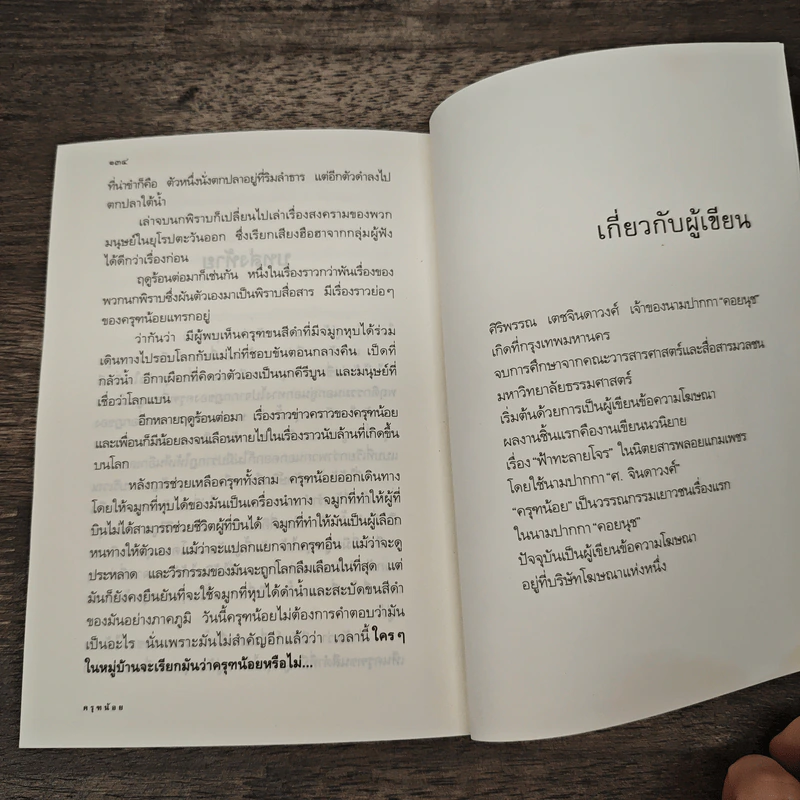 ๑๓๔
ที่น่าขำก็คือ ตัวหนึ่งนั่งตกปลาอยู่ที่ริมลำธาร แต่อีกตัวดำลงไป
ตกปลาใต้น้ำ
เล่าจบนกพิราบก็เปลี่ยนไปเล่าเรื่องสงครามของพวก
มนุษย์ในยุโรปตะวันออก ซึ่งเรียกเสียงฮือฮาจากกลุ่มผู้ฟัง
ได้ดีกว่าเรื่องก่อน
ฤดูร้อนต่อมาก็เช่นกัน หนึ่งในเรื่องราวกว่าพันเรื่องของ
พวกนกพิราบซึ่งผันตัวเองมาเป็นพิราบสื่อสาร มีเรื่องราวย่อยๆ
ของครุฑน้อยแทรกอยู่
ว่ากันว่า มีผู้พบเห็นครุฑขนสีดำที่มีจมูกหุบได้ร่วม
เดินทางไปรอบโลกกับแม่ไก่ที่ชอบขันตอนกลางคืน เป็ดที่
กลัวน้ำ อีกาเผือกที่คิดว่าตัวเองเป็นนกคีรีบูน และมนุษย์ที่
เชื่อว่าโลกแบน
อีกหลายฤดูร้อนต่อมา เรื่องราวข่าวคราวของครุฑน้อย
และเพื่อนก็มีน้อยลงจนเลือนหายไปในเรื่องราวนับล้านที่เกิดขึ้น
บนโลก
หลังการช่วยเหลือครุฑทั้งสาม ครุฑน้อยออกเดินทาง
โดยให้จมูกที่หุบได้ของมันเป็นเครื่องนำทาง จมูกที่ทำให้ผู้ที่
บินไม่ได้สามารถช่วยชีวิตผู้ที่บินได้ จมูกที่ทำให้มันเป็นผู้เลือก
หนทางให้ตัวเอง แม้ว่าจะแปลกแยกจากครุฑอื่น แม้ว่าจะดู
ประหลาด และวีรกรรมของมันจะถูกโลกลืมเลือนในที่สุด แต่
มันก็ยังคงยืนยันที่จะใช้จมูกที่หุบได้ดำน้ำและสะบัดขนสีดำ
ของมันอย่างภาคภูมิ วันนี้ครุฑน้อยไม่ต้องการคำตอบว่ามัน
เป็นอะไร นั่นเพราะมันไม่สำคัญอีกแล้วว่า เวลานี้ ใคร ๆ
ในหมู่บ้านจะเรียกมันว่าครุฑน้อยหรือไม่...
ครุฑน้อย
เกี่ยวกับผู้เขียน
ศิริพรรณ เตชจินดาวงศ์ เจ้าของนามปากกา "คอยนุช"
เกิดที่กรุงเทพมหานคร
จบการศึกษาจากคณะวารสารศาสตร์และสื่อสารมวลชน
มหาวิทยาลัยธรรมศาสตร์
เริ่มต้นด้วยการเป็นผู้เขียนข้อความโฆษณา
ผลงานชิ้นแรกคืองานเขียนนวนิยาย
เรื่อง "ฟ้าทะลายโจร" ในนิตยสารพลอยแกมเพชร
โดยใช้นามปากกา "ศ. จินดาวงศ์"
"ครุฑน้อย" เป็นวรรณกรรมเยาวชนเรื่องแรก
ในนามปากกา "คอยนุช"
ปัจจุบันเป็นผู้เขียนข้อความโฆษณา
อยู่ที่บริษัทโฆษณาแห่งหนึ่ง